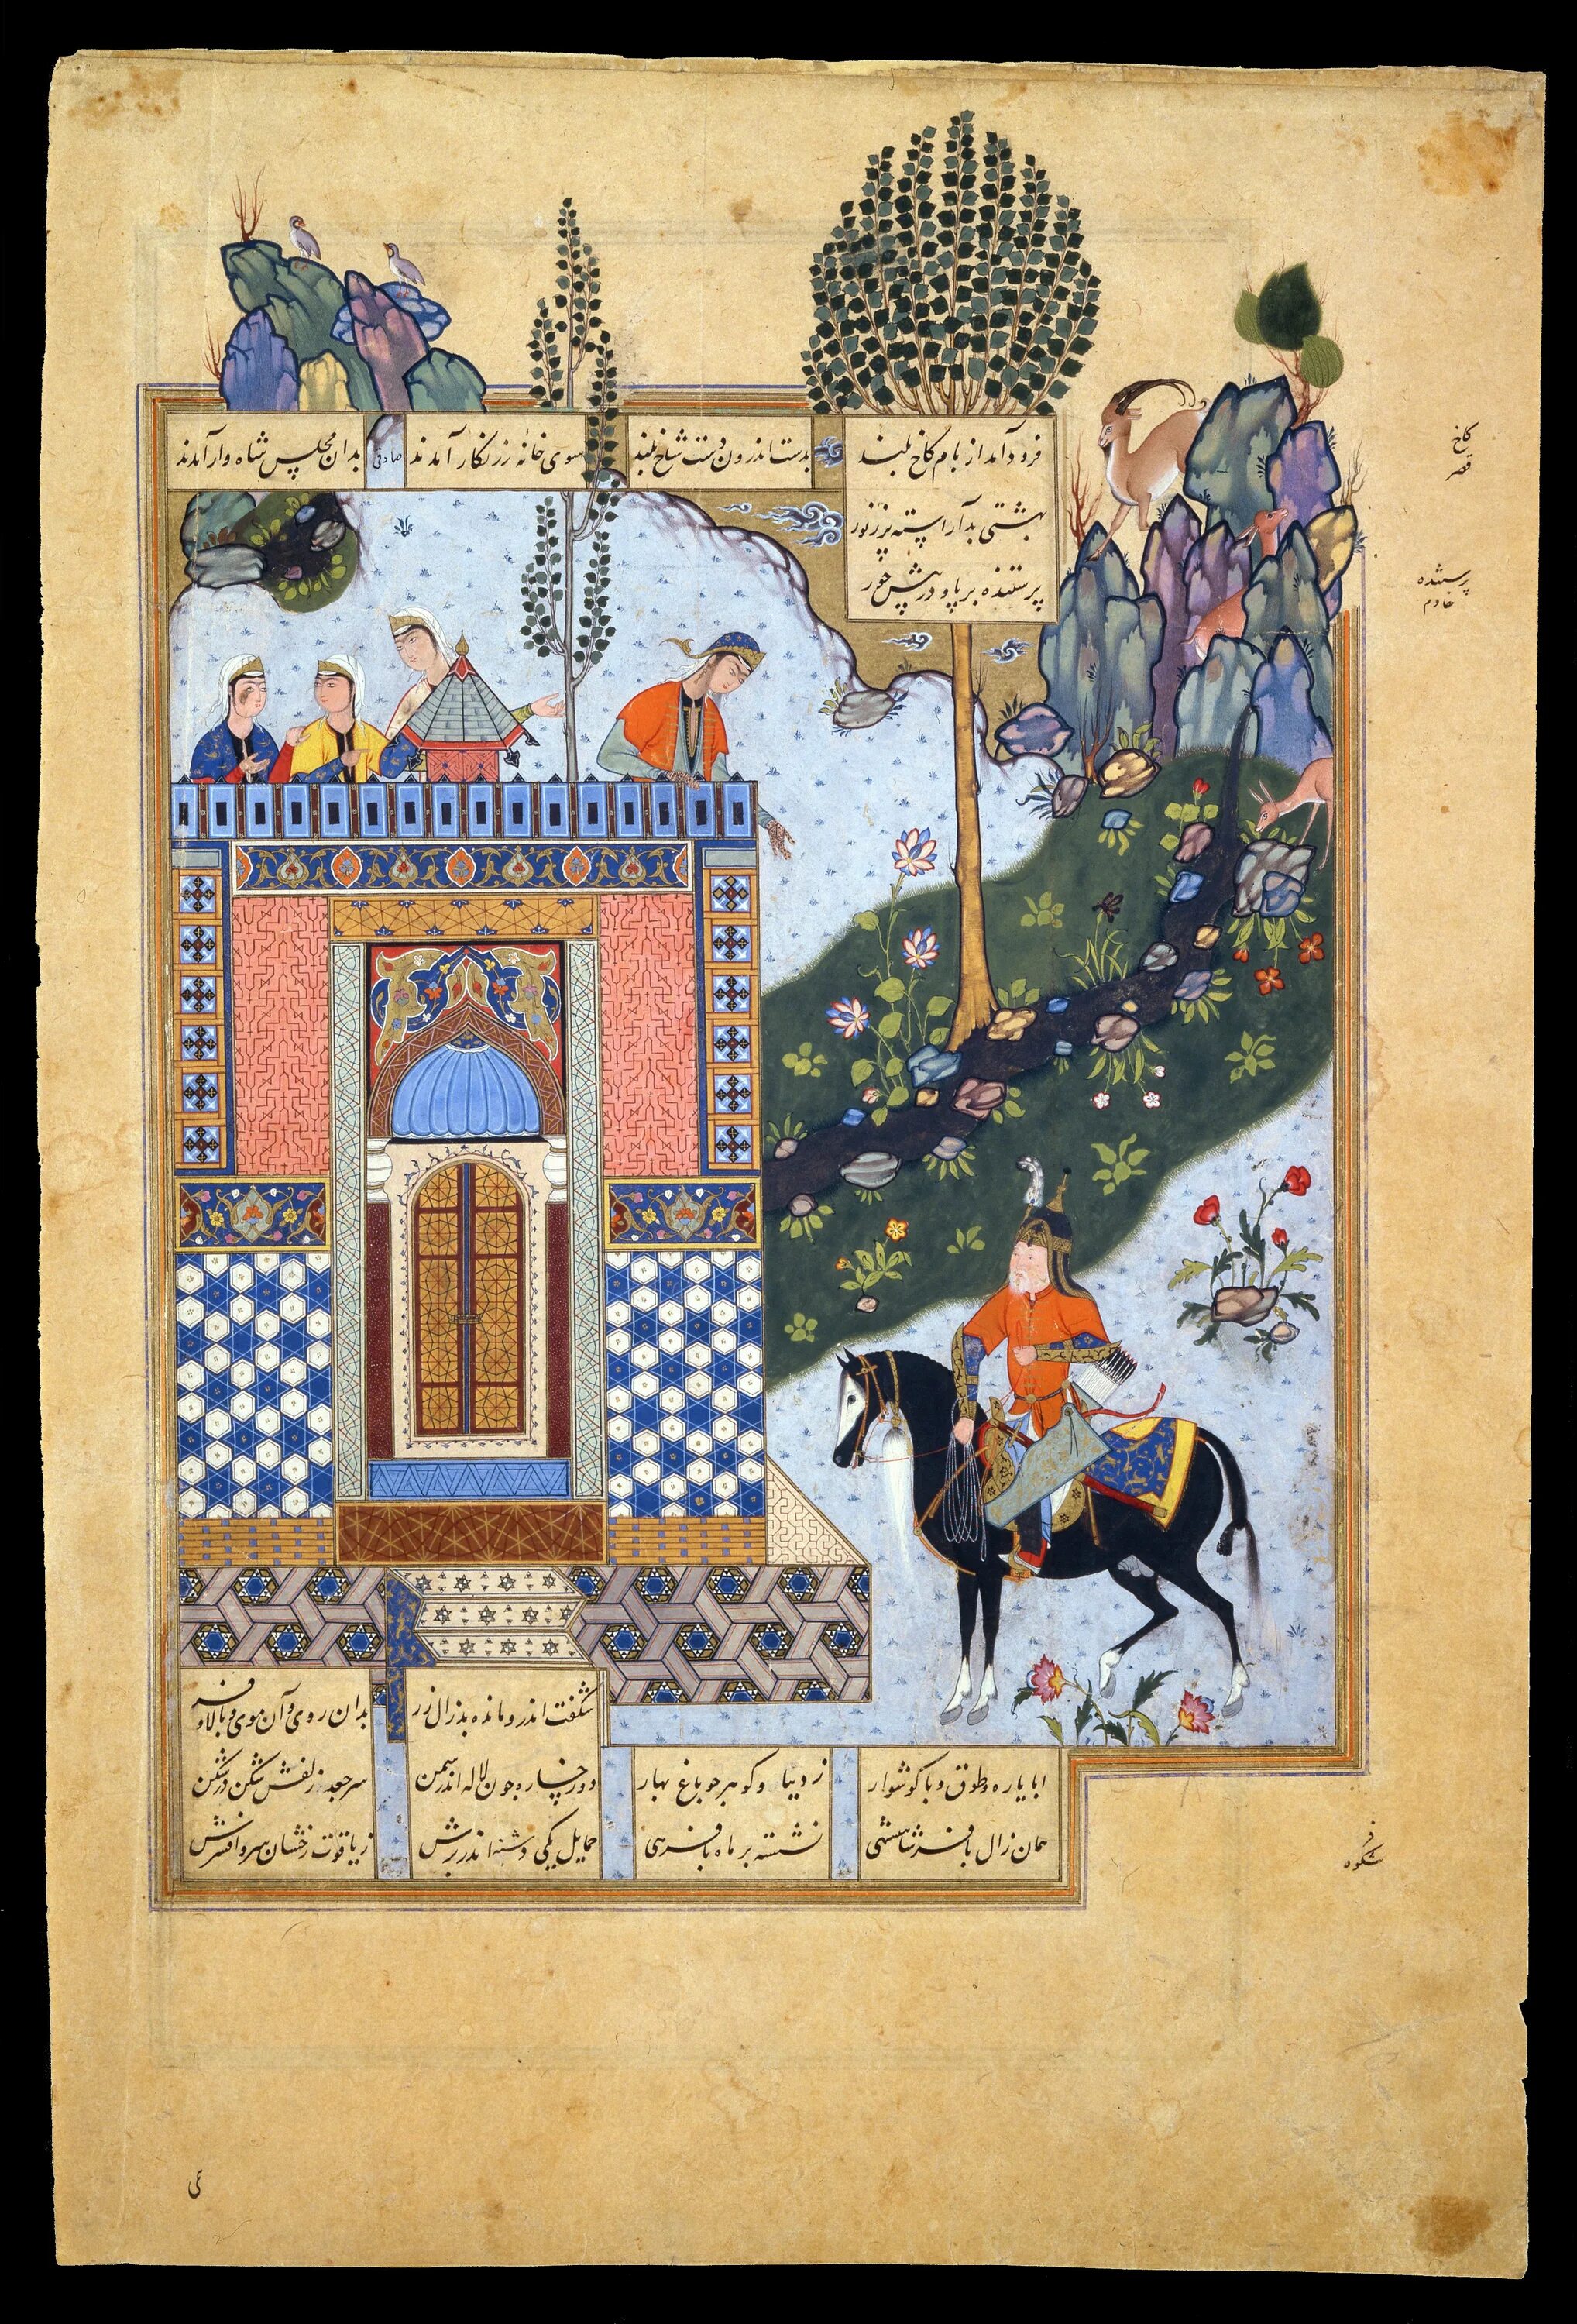 فرود آمد از بام کاخ بلند بدست اندرون دست شاخ بلند سوی خانه زرنگار آمدند صادقی بدان مجلس شاه وار آمدند
بهشتی بد آراسته پر ز نور
پرستنده بر پا و در پیش حور
کاخ
قصر
پرستنده
خادم
شکفت اندرو مانده بد زال زر بدان روی و آن موی و بالا و فر
ابا یاره و طوق و با کوشوار ز دیبا و کوهر جو باغ بهار دو رخساره جون لاله اندر سمن سر جعد زلفش شکن در شکن
همان زال با فر شاهنشهی نشسته بر ماه با فرهی حمایل یکی دشنه اندر برش ز یاقوت رخشان افسرش
فر
شکوه